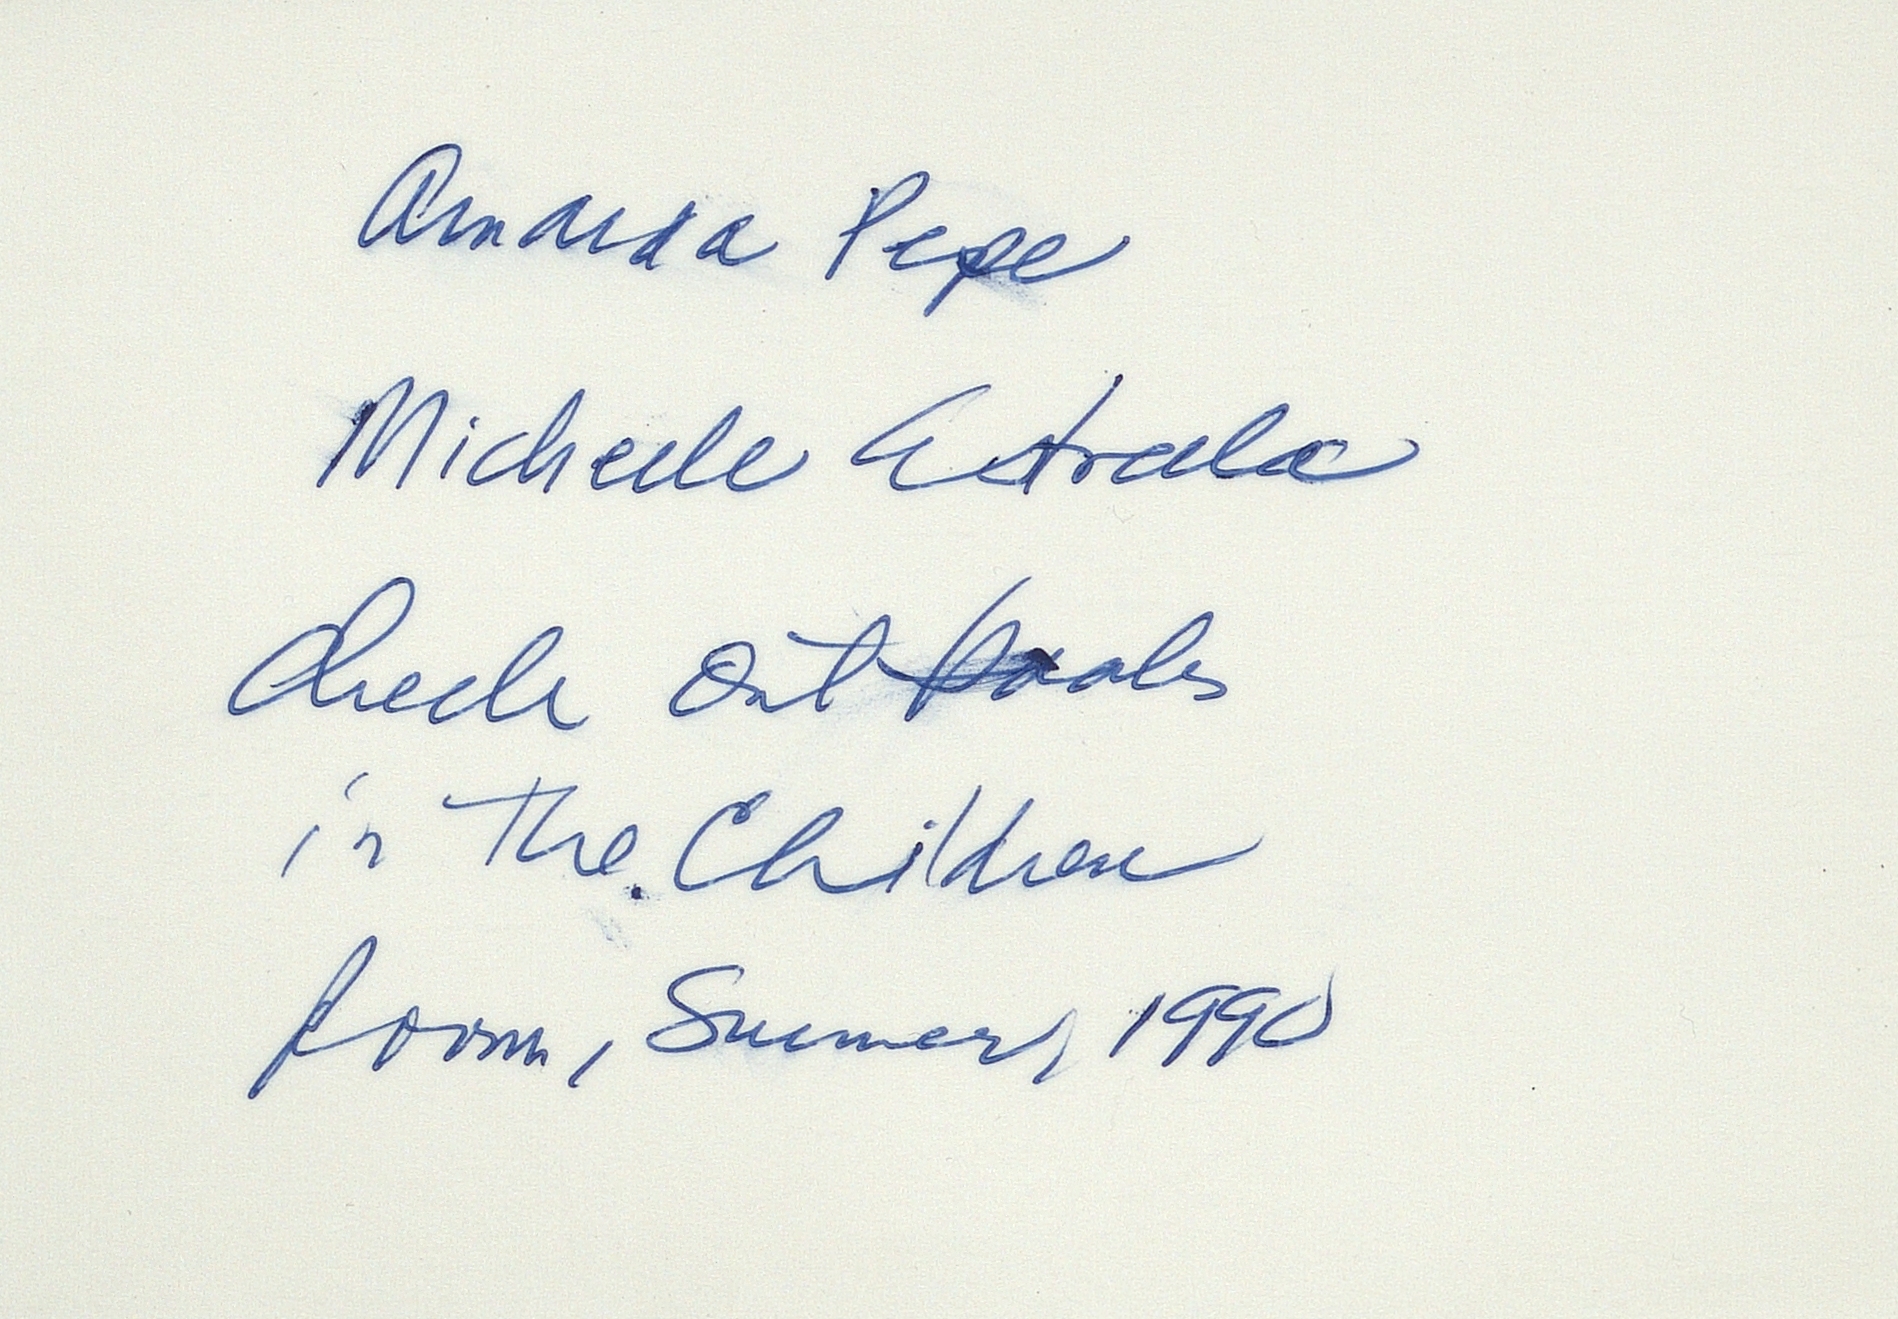 Amanda Pepe
Michele Estrela
Check out books
in The Children
Room, Summer, 1990